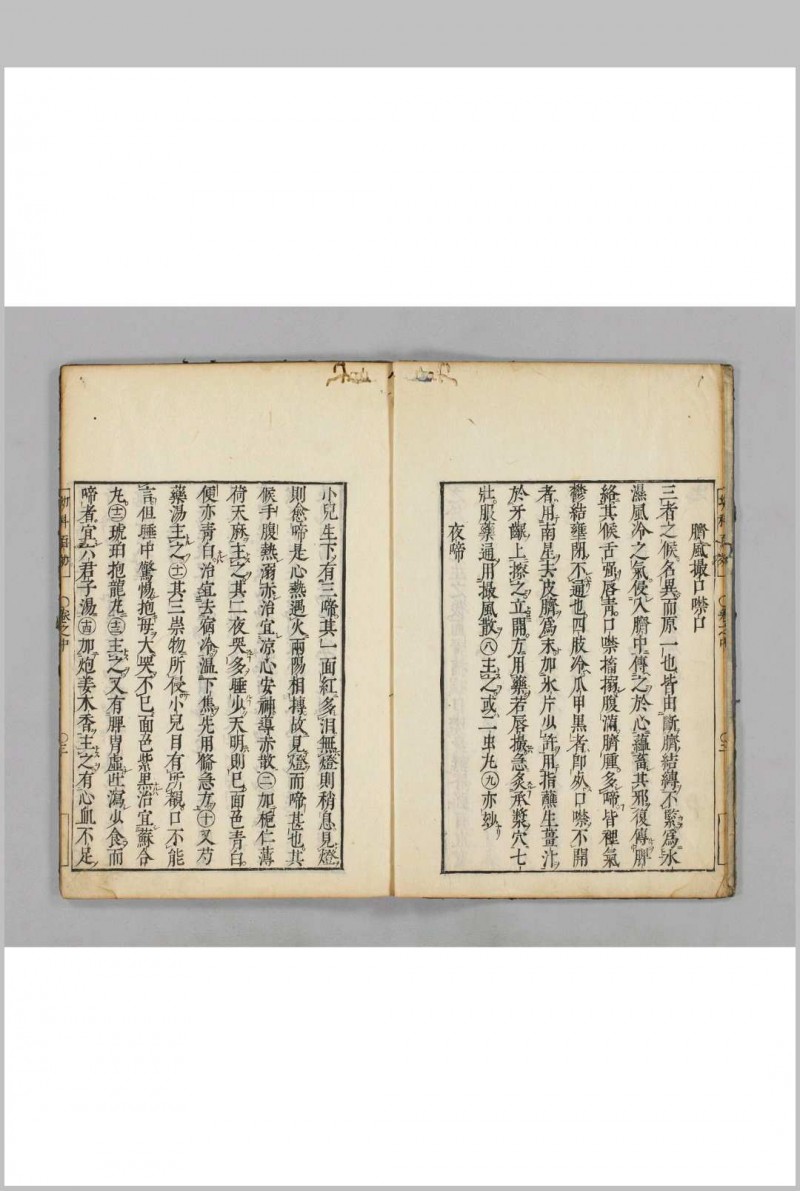 臍風撮口噤口
三者之候名異而原一也皆由斷臍結縛不緊爲水
濕風冷之氣侵入臍中傳之於心蘊畜其邪復傳脾
絡其候舌强唇青口噤搐搦腹滿臍腫多啼皆裡氣
鬱結壅閉不通也四肢冷爪甲黑者卽死口噤不開
者用南星去皮臍爲末加氷片少許用指蘸生薑汁
於牙齦上擦之立開方用藥若唇撮急灸承漿穴七
壯服藥通用撮風散㊇主之或二虫丸㊈亦妙
夜啼
小兒生下有三啼其一面紅多淚無燈則稍息見燈
則愈啼是心熱遇火兩陽相搏故見燈而啼甚也其
候手腹熱溺赤治宜凉心安神導赤散㊂加梔仁薄
荷天麻主之其二夜哭多睡少天明則已面色青白
便亦青白治宜去宿冷温下焦先用 急方㊉又芍
藥湯主之㈩其三祟物所侵小兒目有所覩口不能
言但睡中驚惕抱母大哭不已面色紫黑治宜蘇合
丸㊉琥珀抱龍丸㊉主之又有脾胃虛吐瀉少食而
啼者宜六君子湯㊉加炮姜木香主之有心血不足
幼科百効
卷之中
〇三